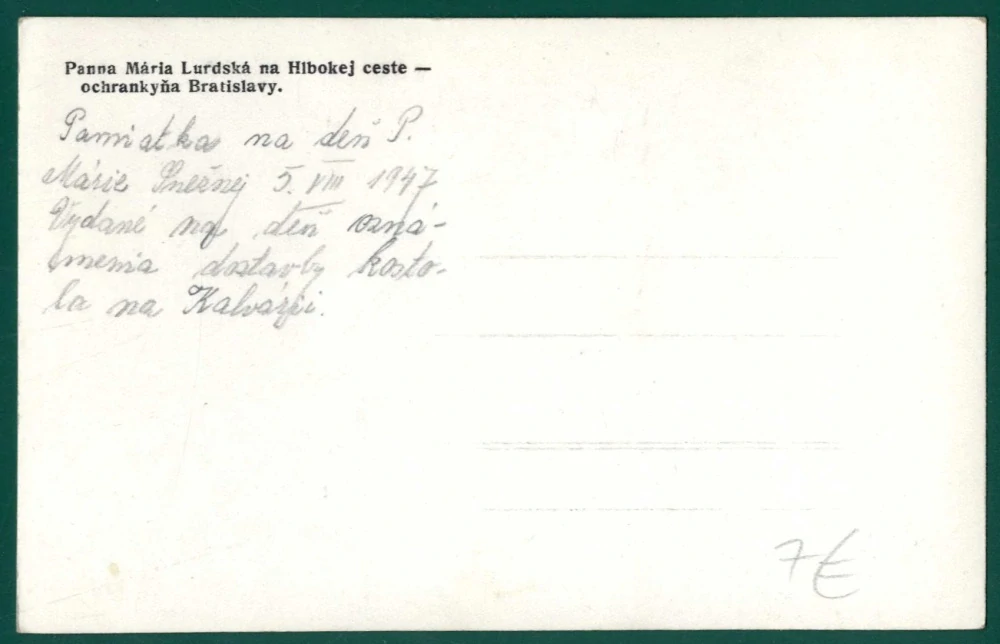 Panna Mária Lurdská na Hlbokej ceste —
ochrankyňa Bratislavy.
Pamiatka na deň P.
Márie Snežnej 5. VIII 1947
Vydané na deň ozná-
menia dostavby kosto-
la na Kalvárii.
7€